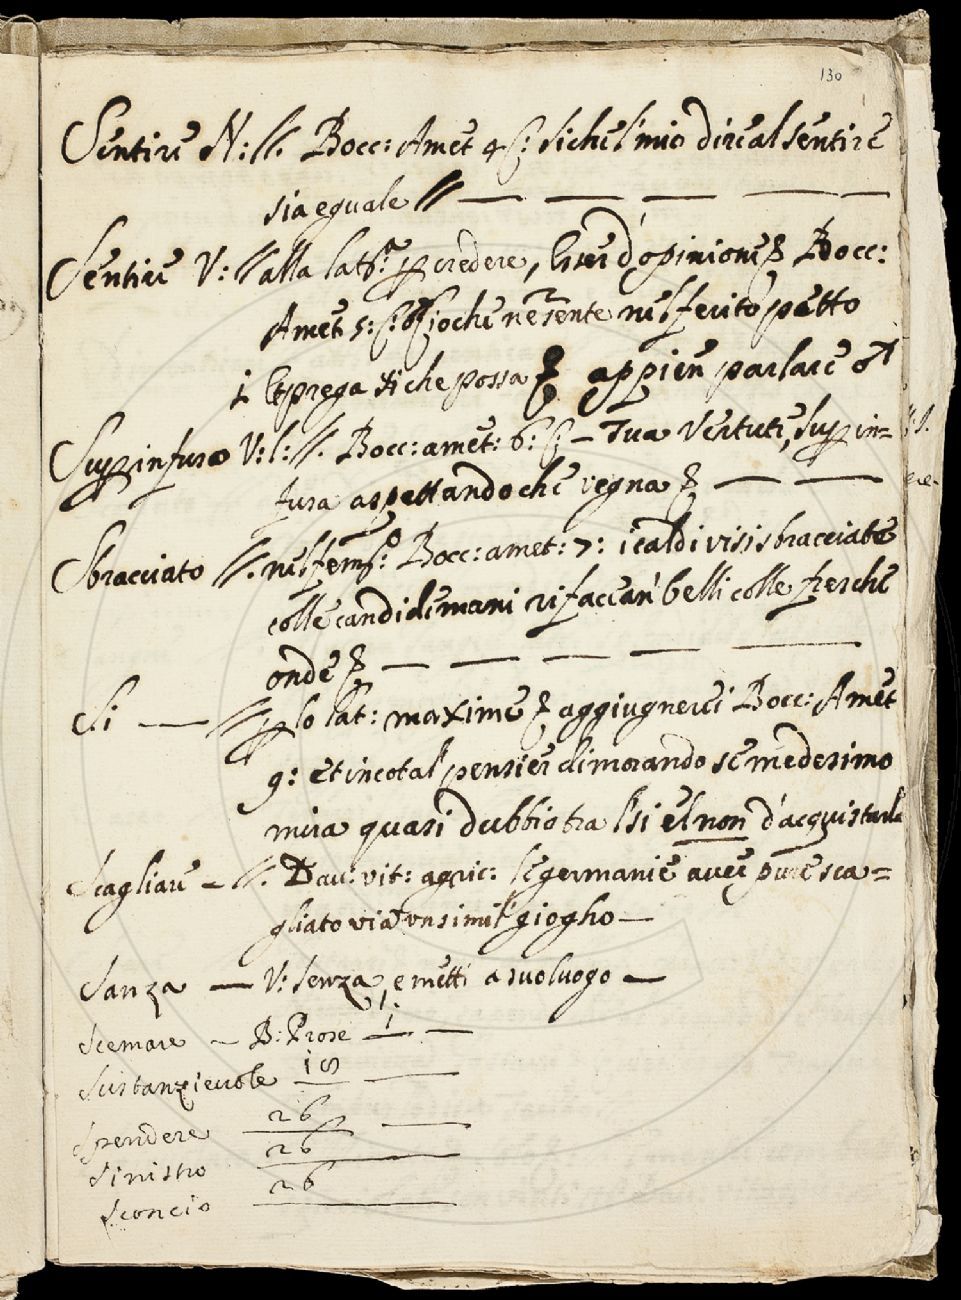 130
Sentire N: //. Bocc: Amet 4 siche l'mio dire al sentire
sia eguale //
Sentire V: // alla lat. per credere, esser d'opinione Bocc:
Amet 5: ioche ne sente nel ferito petto
E prega che possa appien parlare
Superinfusa V: l: //. Bocc: amet: 6: Tua Vertute, superin=
fusa aspettando che vegna
Sbracciato //. nel fem: Bocc: amet: 7: i caldi visi sbracciate
colle candide mani rifaccan' belli colle fresche
onde
Si — // per lo lat: maxime aggiugnerci Bocc: Amet
9: et in cotal pensier dimorando se medesimo
mira quasi dubbio tra l'si el non d'acquistarla
Scagliare - //. Dau: vit: agric: le germanie avere pure sca=
gliato via un simil giogho —
Sanza — V: senza, e metti a suo luogo —
Scemare — B: Prose 1
Sustanzievole 18
Spendere 26
Sinistro 26
Sconcio 26